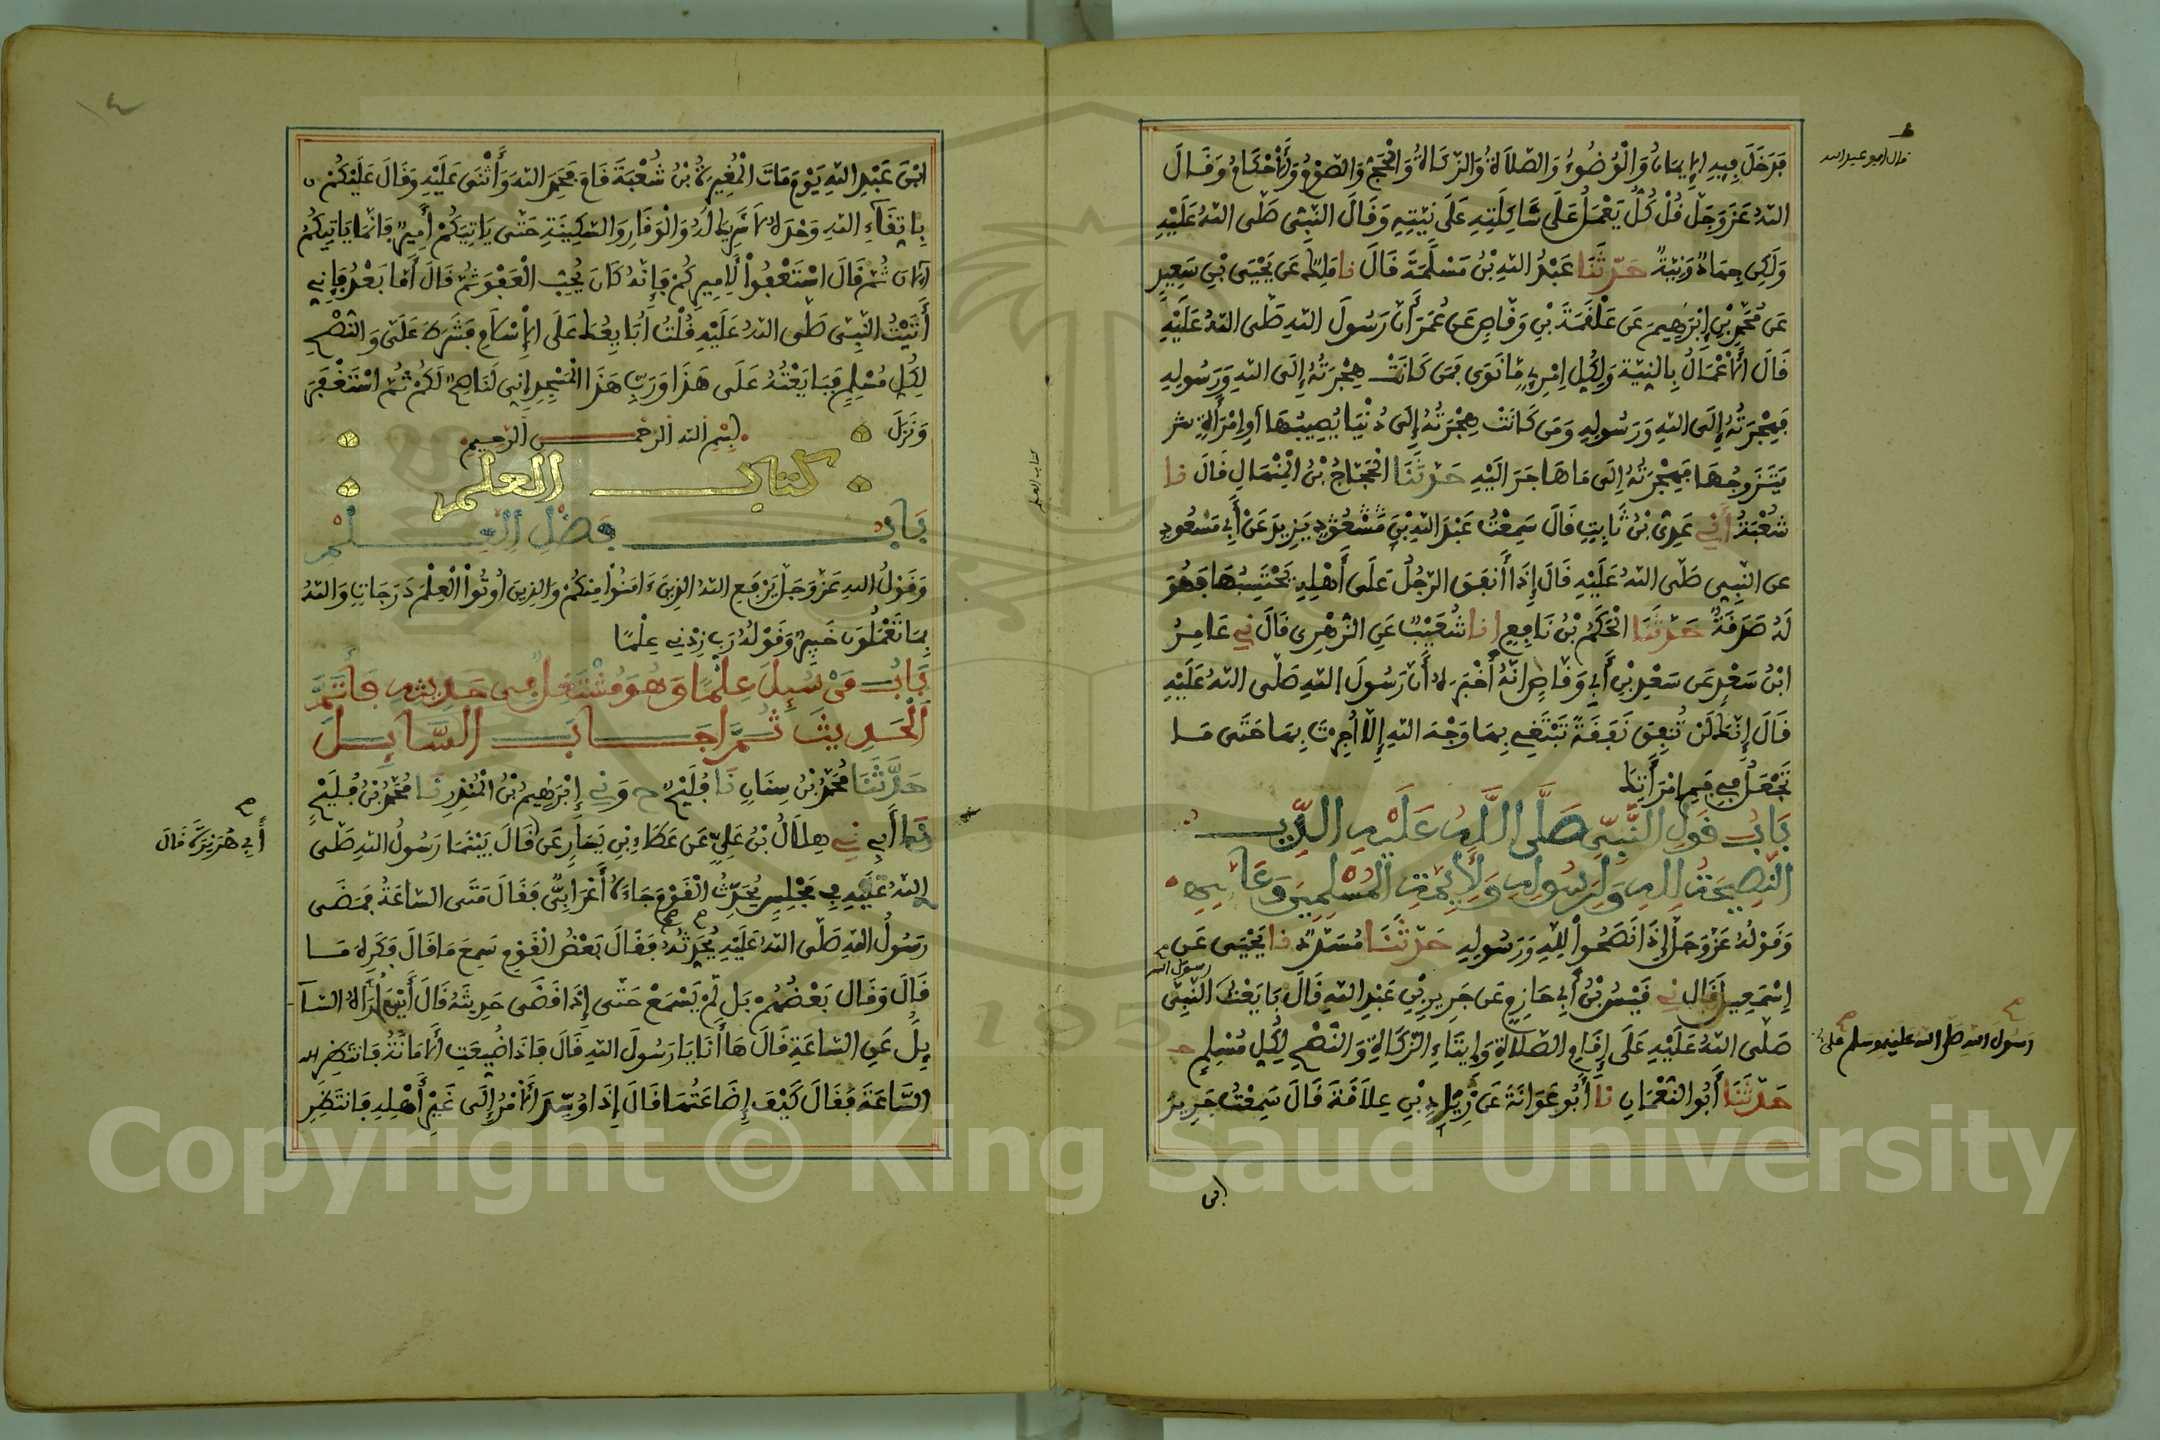 فَدَخَلَ فِيهِ الإِيمَانُ وَالْوُضُوءُ وَالصَّلاَةُ وَالزَّكَاةُ وَالْحَجُّ وَالصَّوْمُ وَالأَحْكَامُ وَقَالَ
قال أبو عبد الله
اللهُ عَزَّ وَجَلَّ قُلْ كُلٌّ يَعْمَلُ عَلَى شَاكِلَتِهِ عَلَى نِيَّتِهِ وَقَالَ النَّبِيُّ صَلَّى اللهُ عَلَيْهِ
وَلَكِن جِهَادٌ وَنِيَّةٌ حَدَّثَنَا عَبْدُ اللهِ بْنُ مَسْلَمَةَ قَالَ نا مَلِكٌ عَن يَحْيَى بْنِ سَعِيدٍ
عَن مُحَمَّدِ بْنِ إِبْرَهِيمَ عَن عَلْقَمَةَ بْنِ وَقَّاصٍ عَن عُمَرَ أَنَّ رَسُولَ اللهِ صَلَّى اللهُ عَلَيْهِ
قَالَ الأَعْمَالُ بِالنِّيَّةِ وَلِكُلِّ امْرِئٍ مَّا نَوَى فَمَن كَانَتْ هِجْرَتُهُ إِلَى اللهِ وَرَسُولِهِ
فَهِجْرَتُهُ إِلَى اللهِ وَرَسُولِهِ وَمَن كَانَتْ هِجْرَتُهُ إِلَى دُنْيَا يُصِيبُهَا أَوِ امْرَأَةٍ
يَتَزَوَّجُهَا فَهِجْرَتُهُ إِلَى مَا هَاجَرَ إِلَيْهِ حَدَّثَنَا الْحَجَّاجُ بْنُ الْمِنْهَالِ قَالَ نا
شُعْبَةُ أَنِي عَدِيُّ بْنُ ثَابِتٍ قَالَ سَمِعْتُ عَبْدَ اللهِ بْنَ يَزِيدَ عَنْ أَبِي مَسْعُودٍ
عَنِ النَّبِيِّ صَلَّى اللهُ عَلَيْهِ قَالَ إِذَا أَنفَقَ الرَّجُلُ عَلَى أَهْلِهِ يَحْتَسِبُهَا فَهُوَ
لَهُ صَدَقَةٌ حَدَّثَنَا الْحَكَمُ بْنُ نَافِعٍ انا شُعَيْبٌ عَنِ الزُّهْرِيِّ قَالَ نِي عَامِرُ
ابْنُ سَعْدٍ عَن سَعْدِ بْنِ أَبِي وَقَّاصٍ أَنَّهُ أَخْبَرَهُ أَنَّ رَسُولَ اللهِ صَلَّى اللهُ عَلَيْهِ
قَالَ إِنَّكَ لَنْ تُنفِقَ نَفَقَةً تَبْتَغِي بِهَا وَجْهَ اللهِ إِلاَّ أُجِرْتَ بِهَا حَتَّى مَا
تَجْعَلُ فِي فَمِ امْرَأَتِكَ
بَابُ قَوْلِ النَّبِيِّ صَلَّى اللَّهُ عَلَيْهِ الدِّينُ
النَّصِيحَةُ لِلَّهِ وَلِرَسُولِهِ وَلِأَئِمَّةِ الْمُسْلِمِينَ وَعَامَّتِهِمْ
وَقَوْلُهُ عَزَّ وَجَلَّ إِذَا نَصَحُواْ لِلهِ وَرَسُولِهِ حَدَّثَنَا مُسَدَّدٌ نا يَحْيَى عَن
إِسْمَعِيلَ قَالَ نِي قَيْسُ بْنُ أَبِي حَازِمٍ عَن جَرِيرِ بْنِ عَبْدِ اللهِ قَالَ بَايَعْتُ النَّبِيَّ
رسول الله
صَلَّى اللهُ عَلَيْهِ عَلَى إِقَامِ الصَّلاَةِ وَإِيتَاءِ الزَّكَاةِ وَالنُّصْحِ لِكُلِّ مُسْلِمٍ
رسول الله صلى الله عليه وسلم على
حَدَّثَنَا أَبُو النُّعْمَانِ نا أَبُو عَوَانَةَ عَن زِيَادِ بْنِ عِلاَقَةَ قَالَ سَمِعْتُ جَرِيرَ
ابن
ابْنَ عَبْدِ اللهِ يَوْمَ مَاتَ الْمُغِيرَةُ بْنُ شُعْبَةَ قَامَ فَحَمِدَ اللهَ وَأَثْنَى عَلَيْهِ وَقَالَ عَلَيْكُمْ
بِاتِّقَاءِ اللهِ وَحْدَهُ لاَ شَرِيكَ لَهُ وَالْوَقَارِ وَالسَّكِينَةِ حَتَّى يَاتِيَكُمْ أَمِيرٌ فَإِنَّمَا يَاتِيكُمُ
الآنَ ثُمَّ قَالَ اسْتَعْفُواْ لِأَمِيرِكُمْ فَإِنَّهُ كَانَ يُحِبُّ الْعَفْوَ ثُمَّ قَالَ أَمَّا بَعْدُ فَإِنِّي
أَتَيْتُ النَّبِيَّ صَلَّى اللهُ عَلَيْهِ قُلْتُ أُبَايِعُكَ عَلَى الإِسْلَامِ فَشَرَطَ عَلَيَّ وَالنُّصْحِ
لِكُلِّ مُسْلِمٍ فَبَايَعْتُهُ عَلَى هَذَا وَرَبِّ هَذَا الْمَسْجِدِ إِنِّي لَنَاصِحٌ لَكُمْ ثُمَّ اسْتَغْفَرَ
وَنَزَلَ
بِسْمِ اللهِ الرَّحْمَنِ الرَّحِيمِ
كتاب العلم
كتاب العلم
بَابُ فَضْلِ الْعِلْمِ
وَقَوْلُ اللهِ عَزَّ وَجَلَّ يَرْفَعِ اللهُ الذِينَ ءَامَنُواْ مِنكُمْ وَالذِينَ أُوتُواْ الْعِلْمَ دَرَجَاتٍ وَاللهُ
بِمَا تَعْمَلُونَ خَبِيرٌ وَقَوْلُهُ رَبِّ زِدْنِي عِلْمًا
بَابُ مَنْ سُئِلَ عِلْمًا وَهُوَ مُشْتَغِلٌ فِي حَدِيثِهِ فَأَتَمَّ
الْحَدِيثَ ثُمَّ أَجَابَ السَّائِلَ
حَدَّثَنَا مُحَمَّدُ بْنُ سِنَانٍ نَا فُلَيْحٌ ح وَنِي إِبْرَهِيمُ بْنُ الْمُنذِرِ نَا مُحَمَّدُ بْنُ فُلَيْحٍ
نا أَبِي نِي هِلَالُ بْنُ عَلِيٍّ عَن عَطَاءِ بْنِ يَسَارٍ عَن قَالَ بَيْنَمَا رَسُولُ اللهِ صَلَّى
أَبِي هُرَيْرَةَ قَالَ
اللهُ عَلَيْهِ فِي مَجْلِسٍ يُحَدِّثُ الْقَوْمَ جَاءَهُ أَعْرَابِيٌّ فَقَالَ مَتَى السَّاعَةُ فَمَضَى
رَسُولُ اللهِ صَلَّى اللهُ عَلَيْهِ يُحَدِّثُهُ فَقَالَ بَعْضُ الْقَوْمِ سَمِعَ مَا قَالَ فَكَرِهَ مَا
قَالَ وَقَالَ بَعْضُهُمْ بَل لَّمْ يَسْمَعْ حَتَّى إِذَا قَضَى حَدِيثَهُ قَالَ أَيْنَ أُرَاهُ السَّا
يِلُ عَنِ السَّاعَةِ قَالَ هَا أَنَا يَا رَسُولَ اللهِ قَالَ فَإِذَا ضُيِّعَتِ الأَمَانَةُ فَانتَظِرِ
السَّاعَةَ فَقَالَ كَيْفَ إِضَاعَتُهَا قَالَ إِذَا وُسِّدَ الأَمْرُ إِلَى غَيْرِ أَهْلِهِ فَانتَظِرِ
Copyright © King Saud University